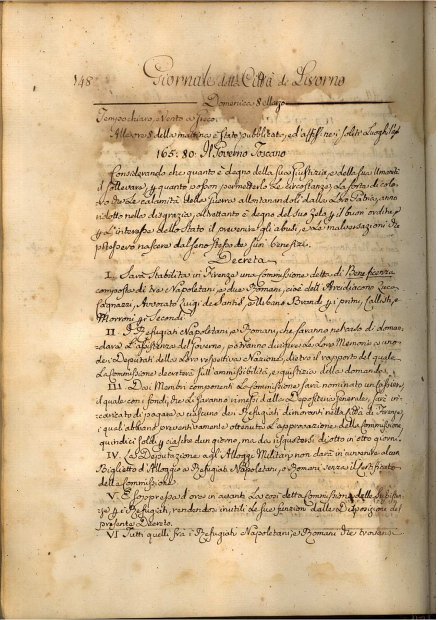 148 Giornale della Città di Livorno
Domenica 8 Marzo
Tempo chiaro, e Vento a Greco.
Alle ore 8 della mattina è Stato pubblicato, ed affisso nei soliti Luoghi
165: 80: Il Governo Toscano
Considerando che quanto è degno della sua Giustizia, e della sua Umanità
di sollevare, quanto posson permetterlo Le circostanze, La sorte di colo-
ro che Le calamità della Guerra allontanandoli dalla Loro Patria, anno
ridotto nelle disgrazie, altrettanto è degno del suo Zelo il buon ordine,
e L'interesse dello Stato il prevenire gli abusi, e Le malversazioni che
potessero nascere dal seno stesso de suoi benefizi.
Decreta
I. Sarà Stabilita in Firenze una Commissione detta di Beneficenza
composta di tre Napoletani, e due Romani, cioè dell' Arcidiacono Luca
Cagnazzi, Avvocato Luigi de Santis, e Urbano Brandi i primi,
Morroni i Secondi
II I Refugiati Napoletani, e Romani, che saranno nel caso di doman-
dare L'assistenza del Governo, potranno dirigere Le Loro Memorie a uno
de' Deputati della Loro respettiva Nazione, dietro il rapporto del quale
La Commissione decreterà sull' ammissibilità, e giustizia della domanda.
III. Dai Membri componenti La Commissione sarà nominato un Cassiere,
il quale con i fondi, che Li saranno rimessi dalla Depositeria Generale, sarà in-
caricato di pagare a ciascuno dei Refugiati dimoranti nella Città di Firenze,
i quali abbiano preventivamente ottenuta L'approvazione della Commissione
quindici soldi a ciascheduno il giorno, ma da riscuotersi di otto in otto giorni.
IV. La Deputazione agli Alloggi Militari non darà in avvenire alcun
Biglietto d'Alloggio ai Refugiati Napoletani, o Romani senza il Certificato
della Commissione.
V. È soppressa d'ora in avanti La così detta Commissione delle Sussisten-
ze i Refugiati, rendendosi inutili Le sue funzioni dalle Disposizioni del
presente Decreto.
VI Tutti quelli fra i Refugiati Napoletani, e Romani che trovansi